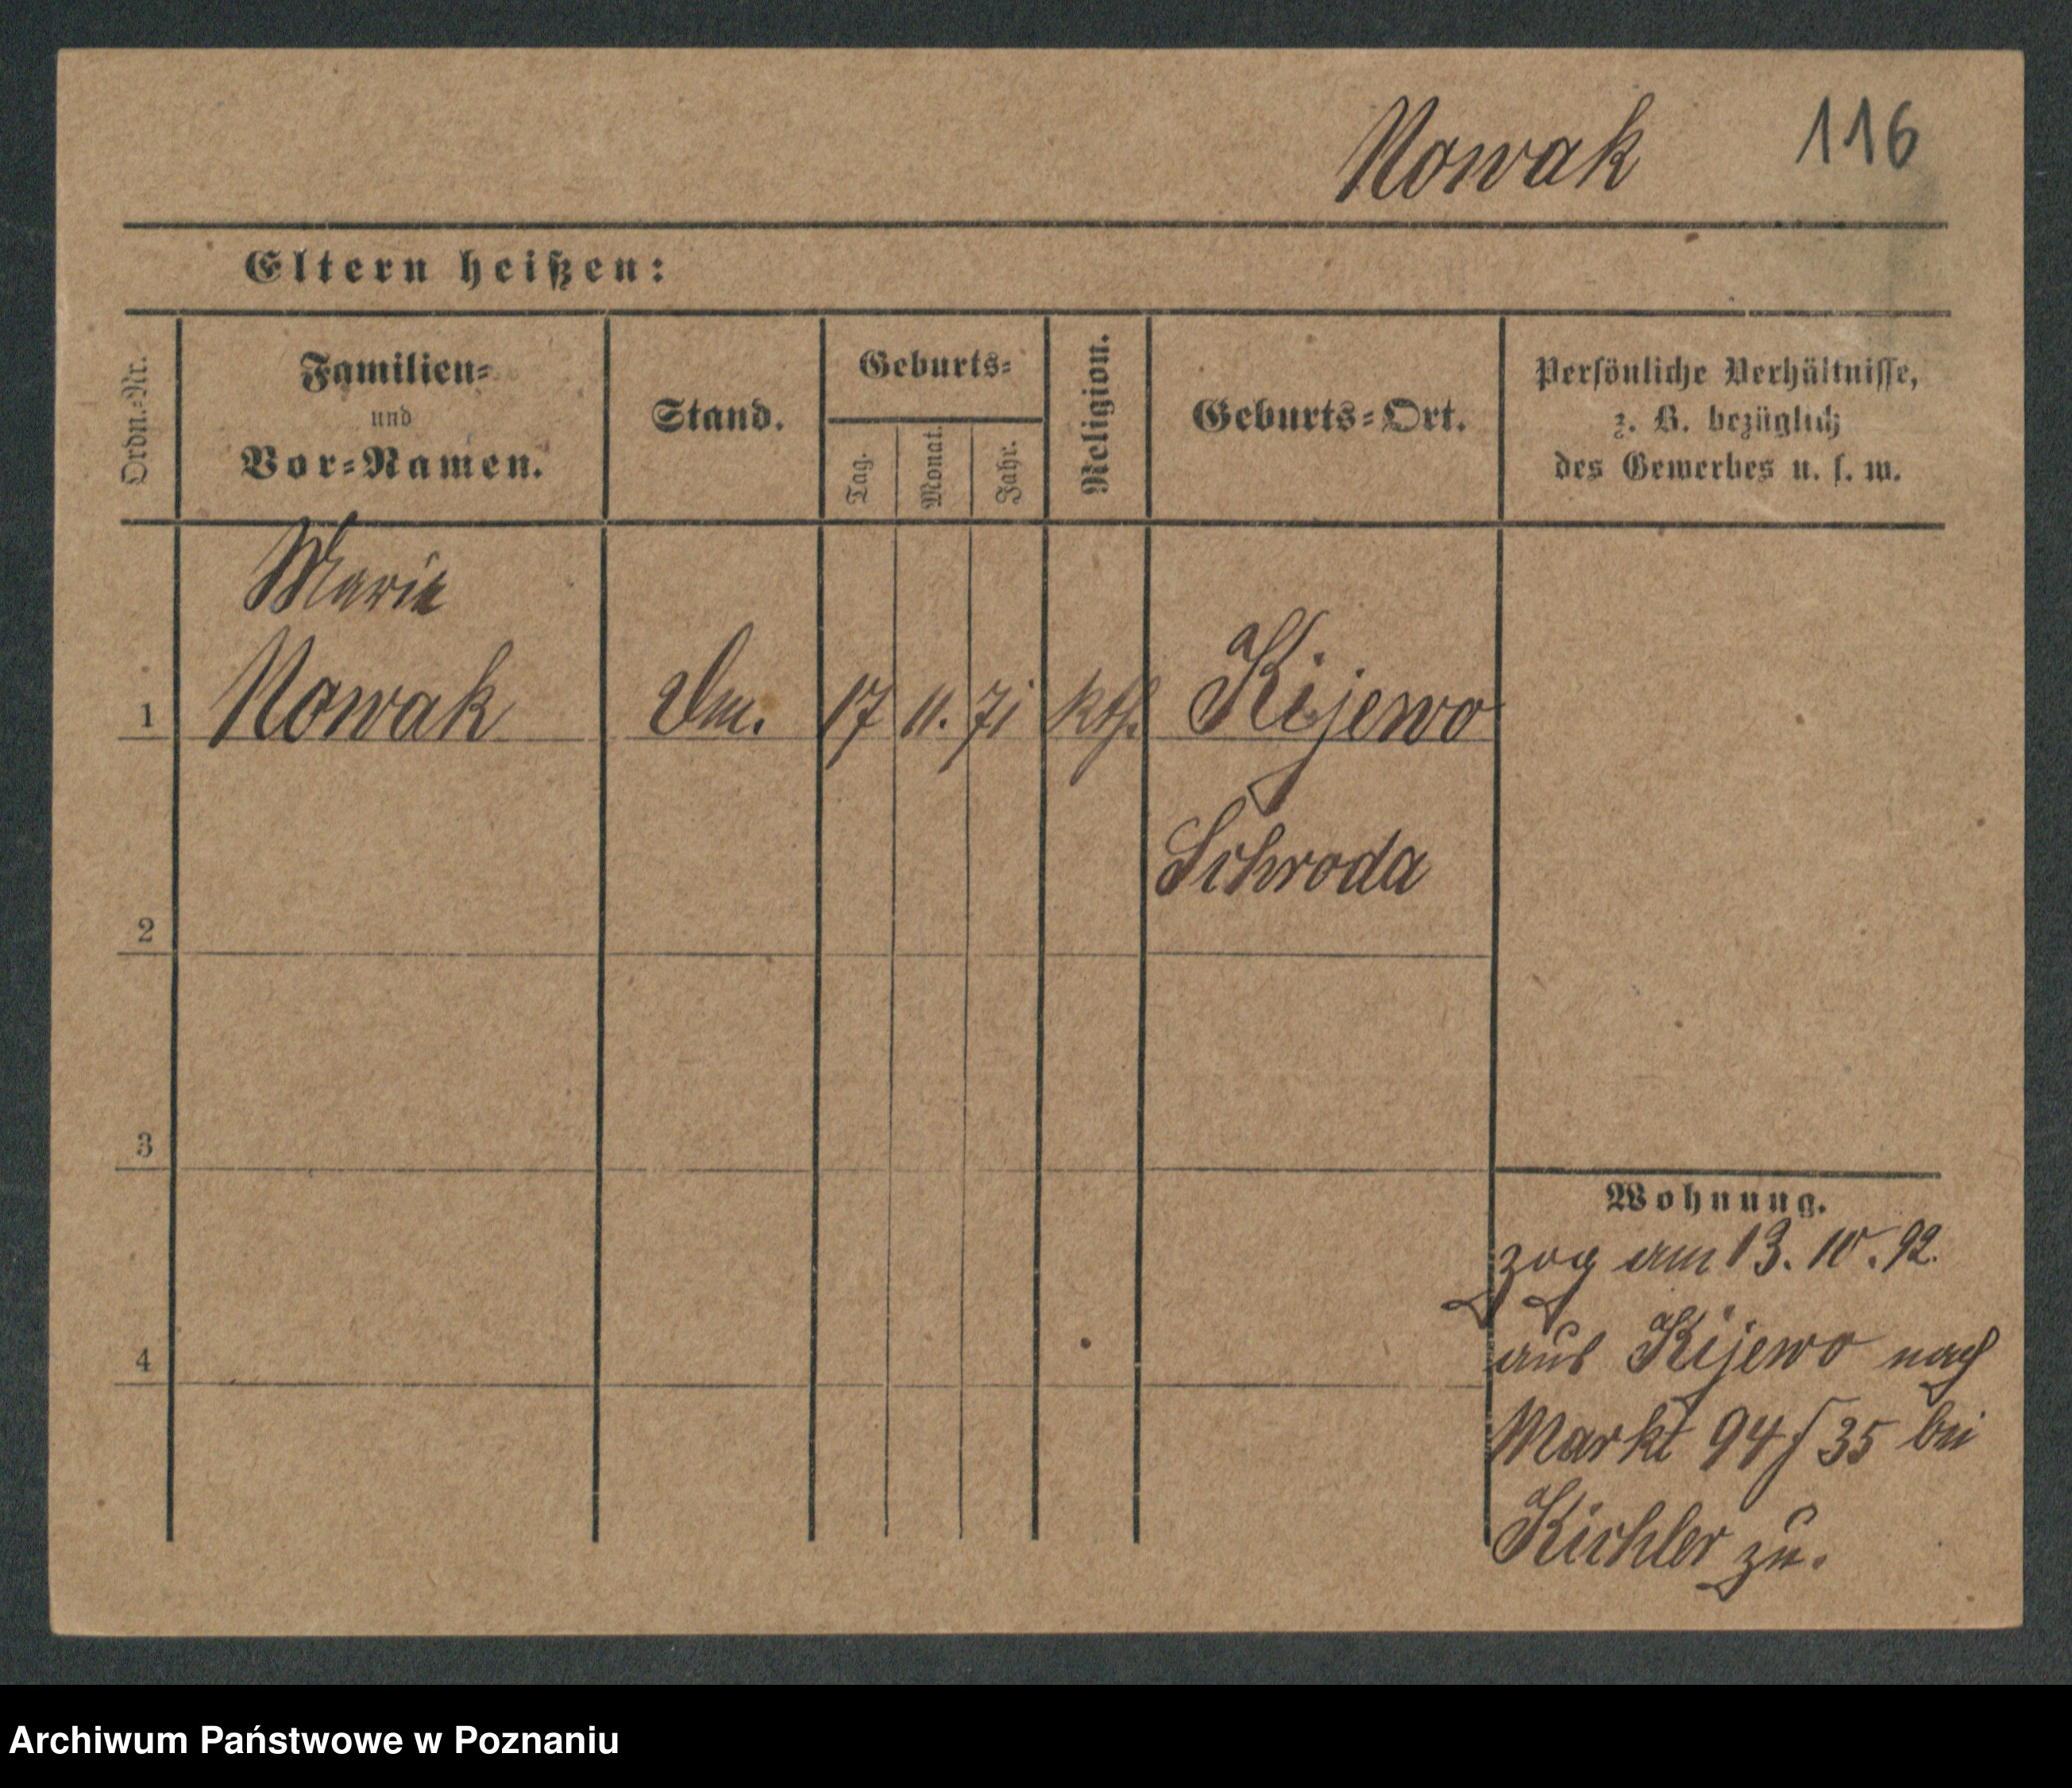 Nowak 116
Eltern heißen:
Ordn.-Nr.
Familien-
und
Vor-Namen.
Stand.
Geburts-
Tag.
Monat.
Jahr.
Religion.
Geburts-Ort.
Persönliche Verhältnisse,
z. B. bezüglich
des Gewerbes u. s. w.
Marie
1 Nowak 17 11. 71 kth. Kijewo
Schroda
2
3
Wohnung.
zog am 13. 10. 92.
aus Kijewo nach
4
Markt 94/35 bei
zu.
Archiwum Państwowe w Poznaniu